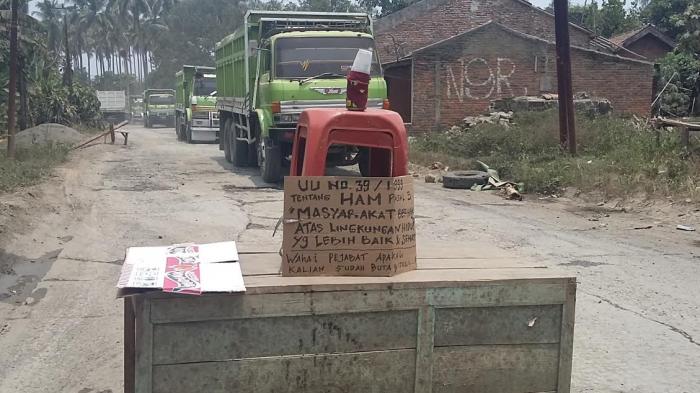 NGR
UU NO. 39 / 1999
TENTANG HAM PASAL 3
"MASYARAKAT BERHAK
ATAS LINGKUNGAN HIDUP
YG LEBIH BAIK & SEHAT
WAHAI PEJABAT APAKAH
KALIAN SUDAH BUTA &